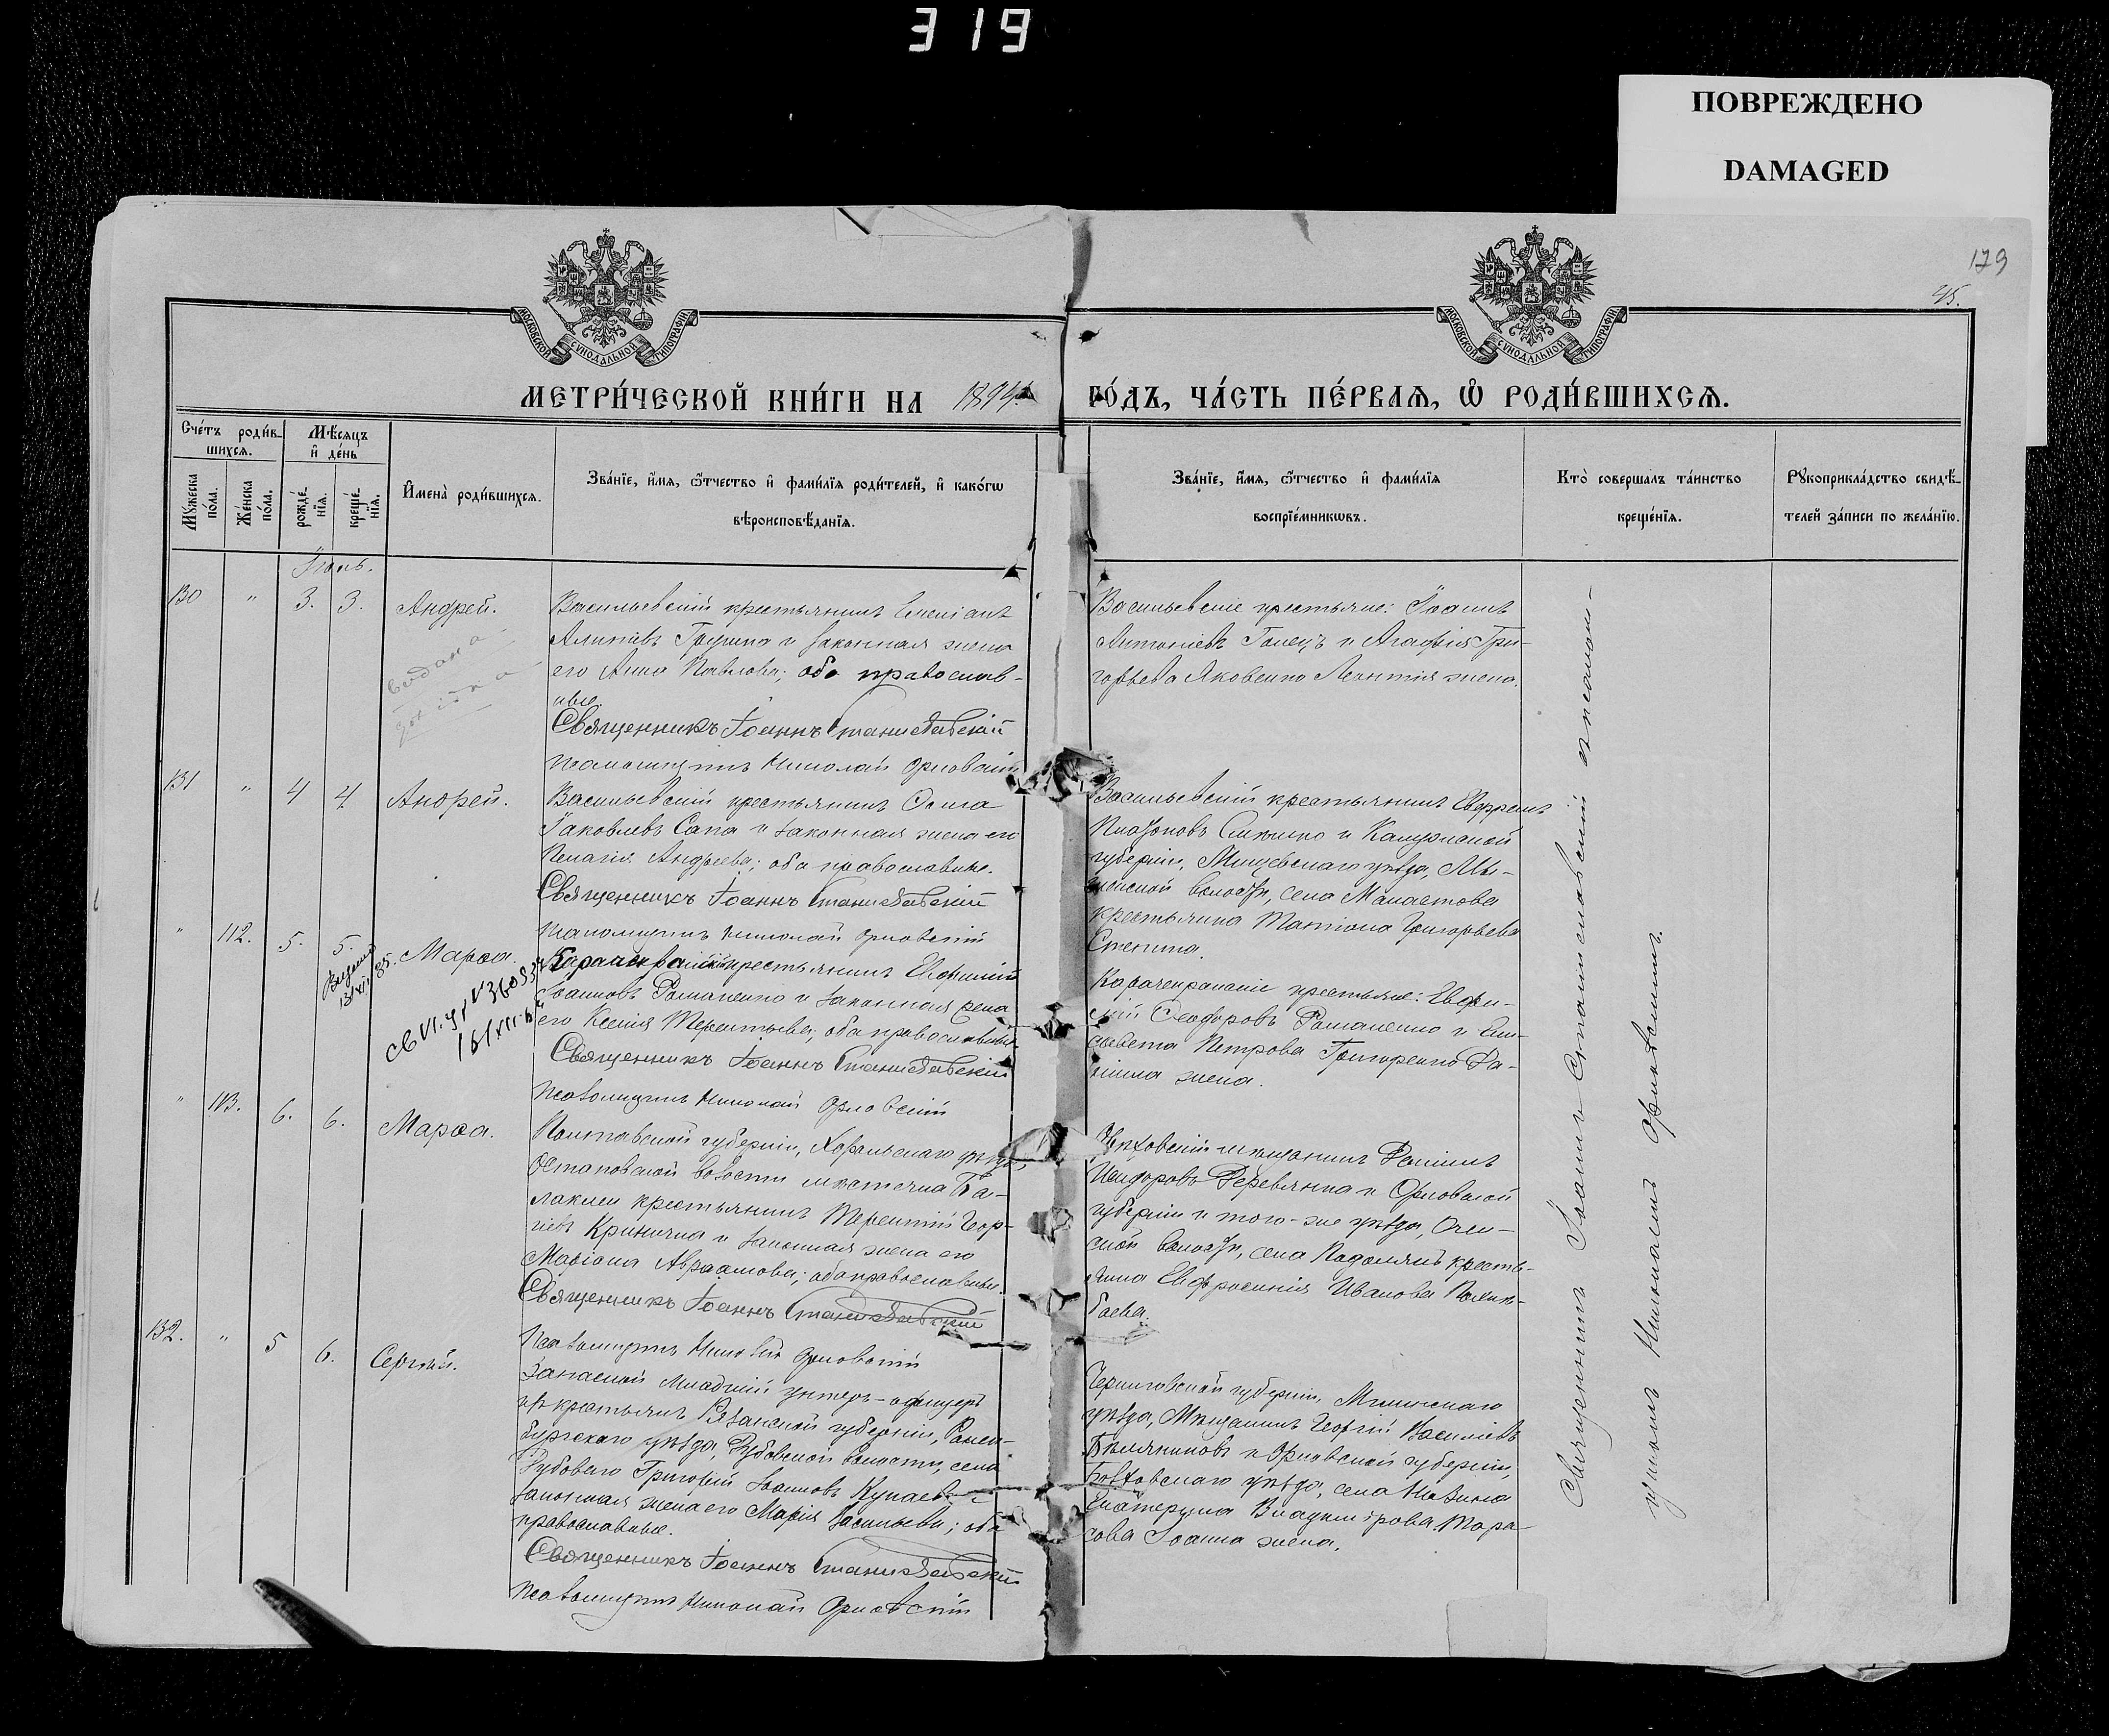 319
ПОВРЕЖДЕНО
DAMAGED
179
45.
МОСКОВСКОЙ СѴНОДАЛЬНОЙ ТИПОГРАФІИ
МОСКОВСКОЙ СѴНОДАЛЬНОЙ ТИПОГРАФІИ
МЕТРИ́ЧЕСКОЙ КНИ́ГИ НА 1894
ГО́ДЪ, ЧА́СТЬ ПЕ́РВАѦ, Ѡ РОДИ́ВШИХСѦ.
Сче́тъ роди́в-
шихся.
Мꙋ́жеска по́ла.
Же́нска по́ла.
Мѣ́сяцъ
и҆ де́нь
рожде́-
нїя.
креще́-
нїя.
И҆мена̀ роди́вшихся.
Зва́нїе, и҆́мя, ѻ҆́тчество и҆ фами́лїя роди́телей, и҆ како́гѡ
вѣроисповѣ́данїя.
Зва́нїе, и҆́мя, ѻ҆́тчество и҆ фами́лїя
воспрїе́мникѡвъ.
Кто̀ соверша́лъ та́инство
креще́нїя.
Рꙋкоприкла́дство свидѣ́-
телей за́писи по жела́нїю.
Іюль.
130 " 3. 3. Андрей.
Васильевскій крестьянинъ Емеліанъ
и законная жена
его Анна Павлова; оба православ-
ные.
Священникъ Іоаннъ Станиславскій
Псаломщикъ Николай Орловскій
Васильевскіе крестьяне: Іоаннъ
Антоніевъ Голецъ и Агафія Гри-
горьева Яковенко Леонтія жена.
131 " 4 4. Андрей.
Васильевскій крестьянинъ Осипъ
Іаковлевъ Сапа и законная жена его
Пелагія Андреева; оба православные.
Священникъ Іоаннъ Станиславскій
Псаломщикъ Николай Орловскій
Васильевскій крестьянинъ Евфремъ
и Калужской
губерніи, Мещевскаго уѣзда,
волости, села
крестьянина Татіана Григорьева
Степина.
" 112. 5. 5. Марѳа.
крестьянинъ Евфимій
Іоанновъ Романенко и законная жена
его Ксенія Терентьева; оба православные.
Священникъ Іоаннъ Станиславскій
Псаломщикъ Николай Орловскій
крестьяне: Евфи-
мій Ѳеодоровъ Романенко и Ели-
савета Петрова Григоренко Да-
ніила жена.
" 113. 6. 6. Марѳа.
Полтавской губерніи, Хорольскаго уѣзда,
Остаповской волости мѣстечка Ба-
лаклеи крестьянинъ Терентій Геор-
гіевъ Кринична и законная жена его
Маріана Авраамова; оба православные.
Священникъ Іоаннъ Станиславскій
Псаломщикъ Николай Орловскій
мѣщанинъ
Исидоровъ Деревянка и Орловской
губерніи и того-же уѣзда,
волости, села кресть-
янка Евфросинія Иванова
132. " 5 6. Сергѣй.
Запасной младшій унтеръ-офицеръ
изъ крестьянъ Рязанской губерніи, Ранен-
бургскаго уѣзда, Зубовской волости, села
Зубоваго Григорій Іоанновъ Купаевъ и
законная жена его Марія Васильева; оба
православные.
Священникъ Іоаннъ Станиславскій
Псаломщикъ Николай Орловскій
Черниговской губерніи, Мглинскаго
уѣзда, мѣщанинъ Георгій Василіевъ
и Орловской губерніи,
Болховскаго уѣзда, села
Екатерина Владимірова Тара-
сова Іоанна жена.
Священникъ Іоаннъ Станиславскій и псалом-
щикъ Николай Орловскій.